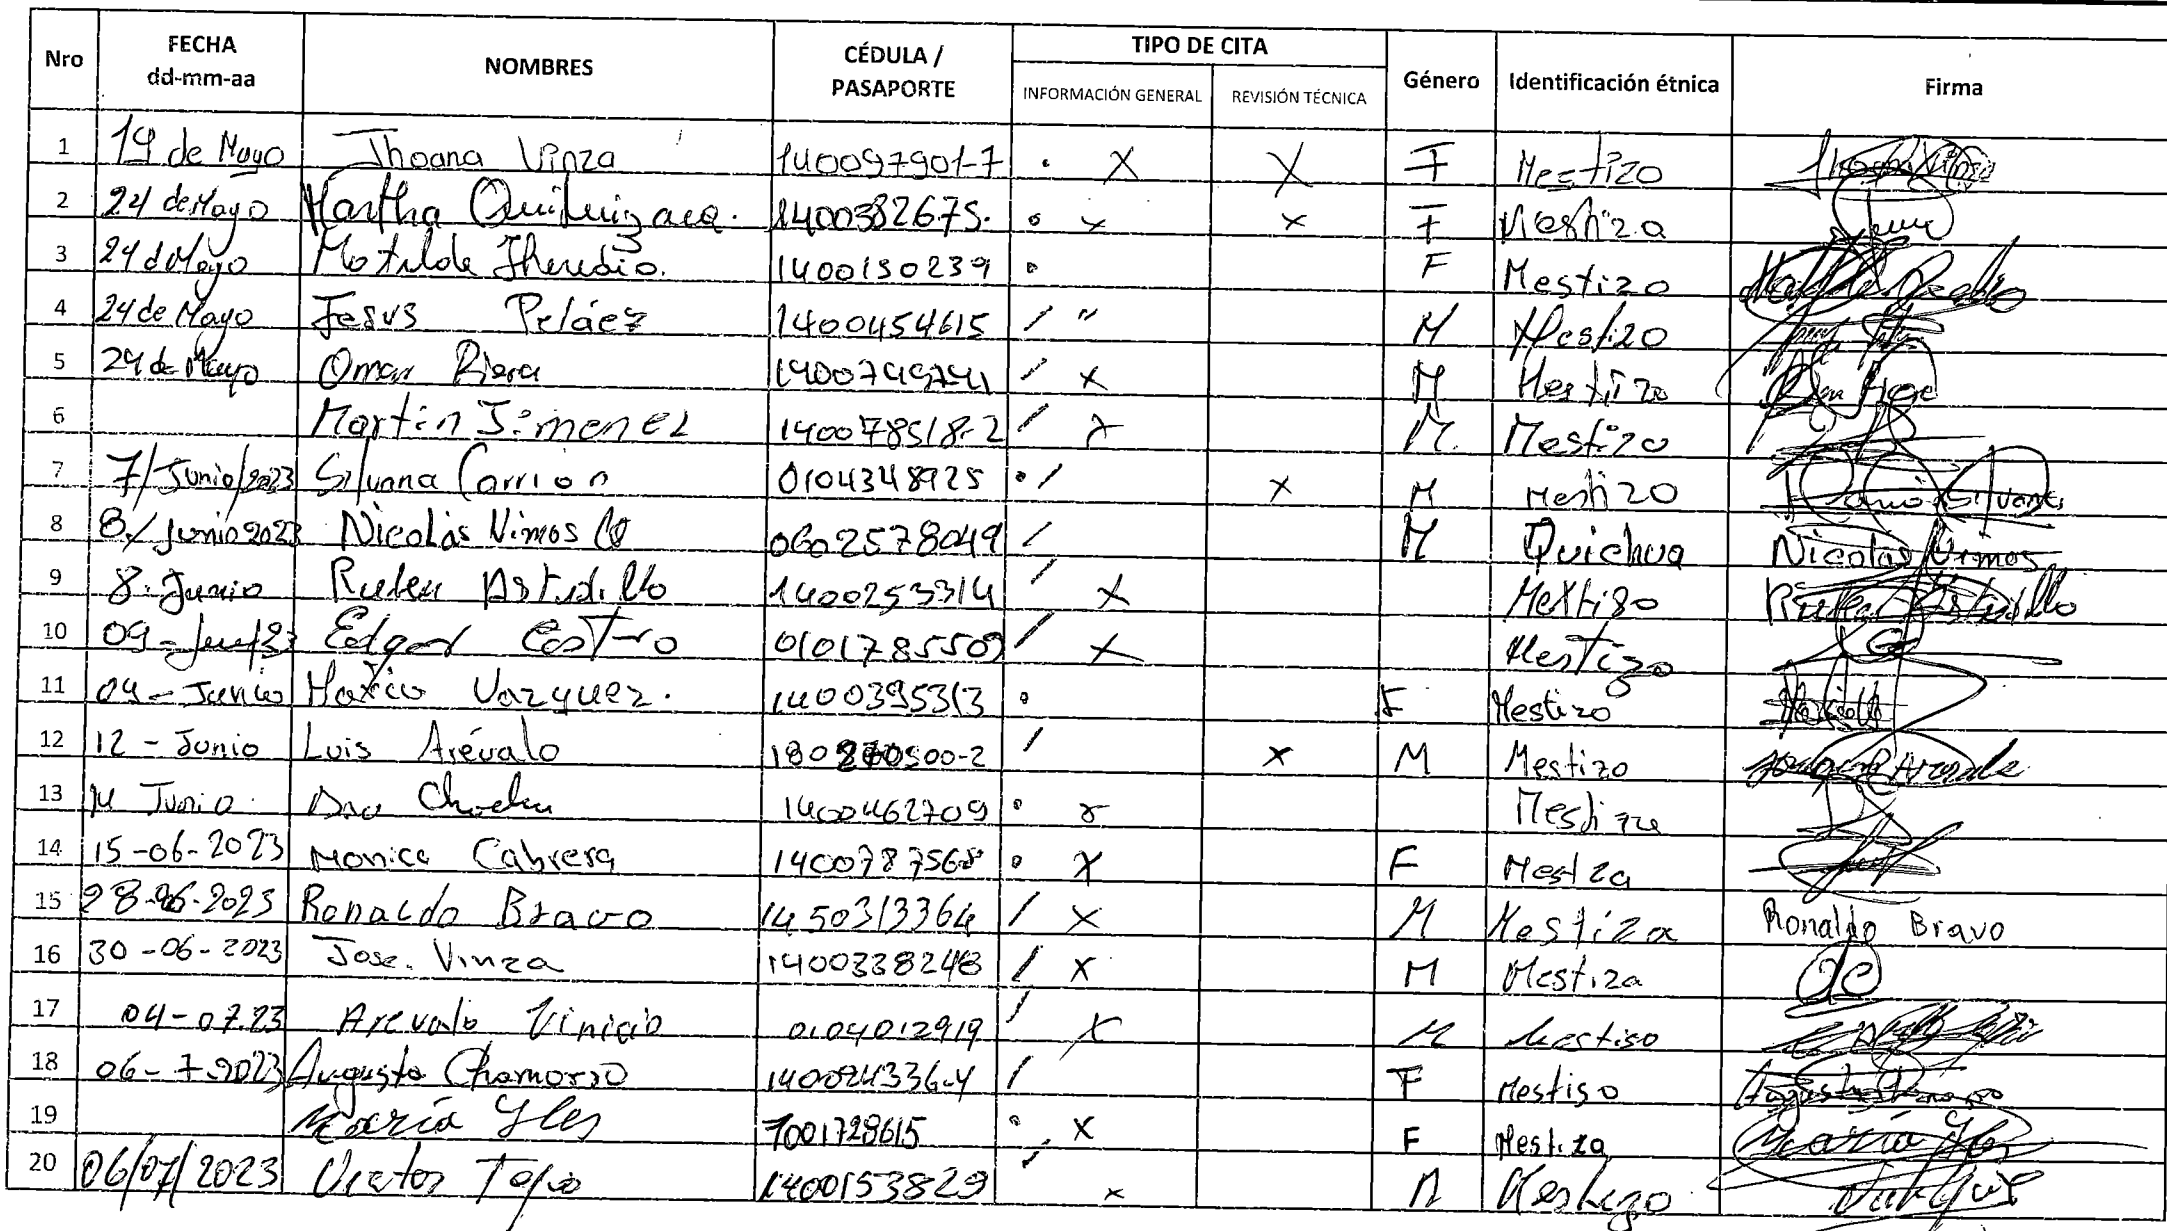 Nro FECHA dd-mm-aa NOMBRES CÉDULA / PASAPORTE TIPO DE CITA INFORMACIÓN GENERAL REVISIÓN TÉCNICA Género Identificación étnica Firma
1 19 de Mayo Jhoana Vinza 140097901-7 X X F Mestizo
2 24 de Mayo Martha 1400382675. x x F Mestiza
3 24 d Mayo Matilde Heredia. 1400130239 F Mestizo
4 24 de Mayo Jesus Peláez 1400454615 / " M Mestizo
5 24 de Mayo Omar Riera 1400749741 / x M Mestizo
6 Martin Jimenez 140078518-2 / x M. Mestizo
7 7/Junio/2023 Silvana Carrion 0104348925 / x M Mestizo
8 8/Junio 2023 Nicolás Vimos 0602578049 / M Quichua Nicolas Vimos
9 8. Junio Ruben Astudillo 1400253314 / X Mextizo Ruben Astudillo
10 09- Edgar Castro 0101785509 / X Mestizo
11 09-Junio Vazquez. 1400395313 F Mestizo
12 12-Junio Luis Arévalo / x M Mestizo
13 14 Junio. 1400462709 x
14 15-06-2023 Monica Cabrera 1400787568 X F
15 28-06-2023 Ronaldo Bravo 1450313364 / X M Mestiza Ronaldo Bravo
16 30-06-2023 Jose. Vinza 1400338248 / X M Mestiza
17 04-07.23 Arevalo Vinicio 0104012919 / X M Mestiso
18 06-7-2023 Augusta Chamorro 140024336-4 / F Mestiso
19 María Iles 1001728615 X F Mestiza María Iles
20 06/07/2023 Victor Tapia 1400153829 / x M Mestizo